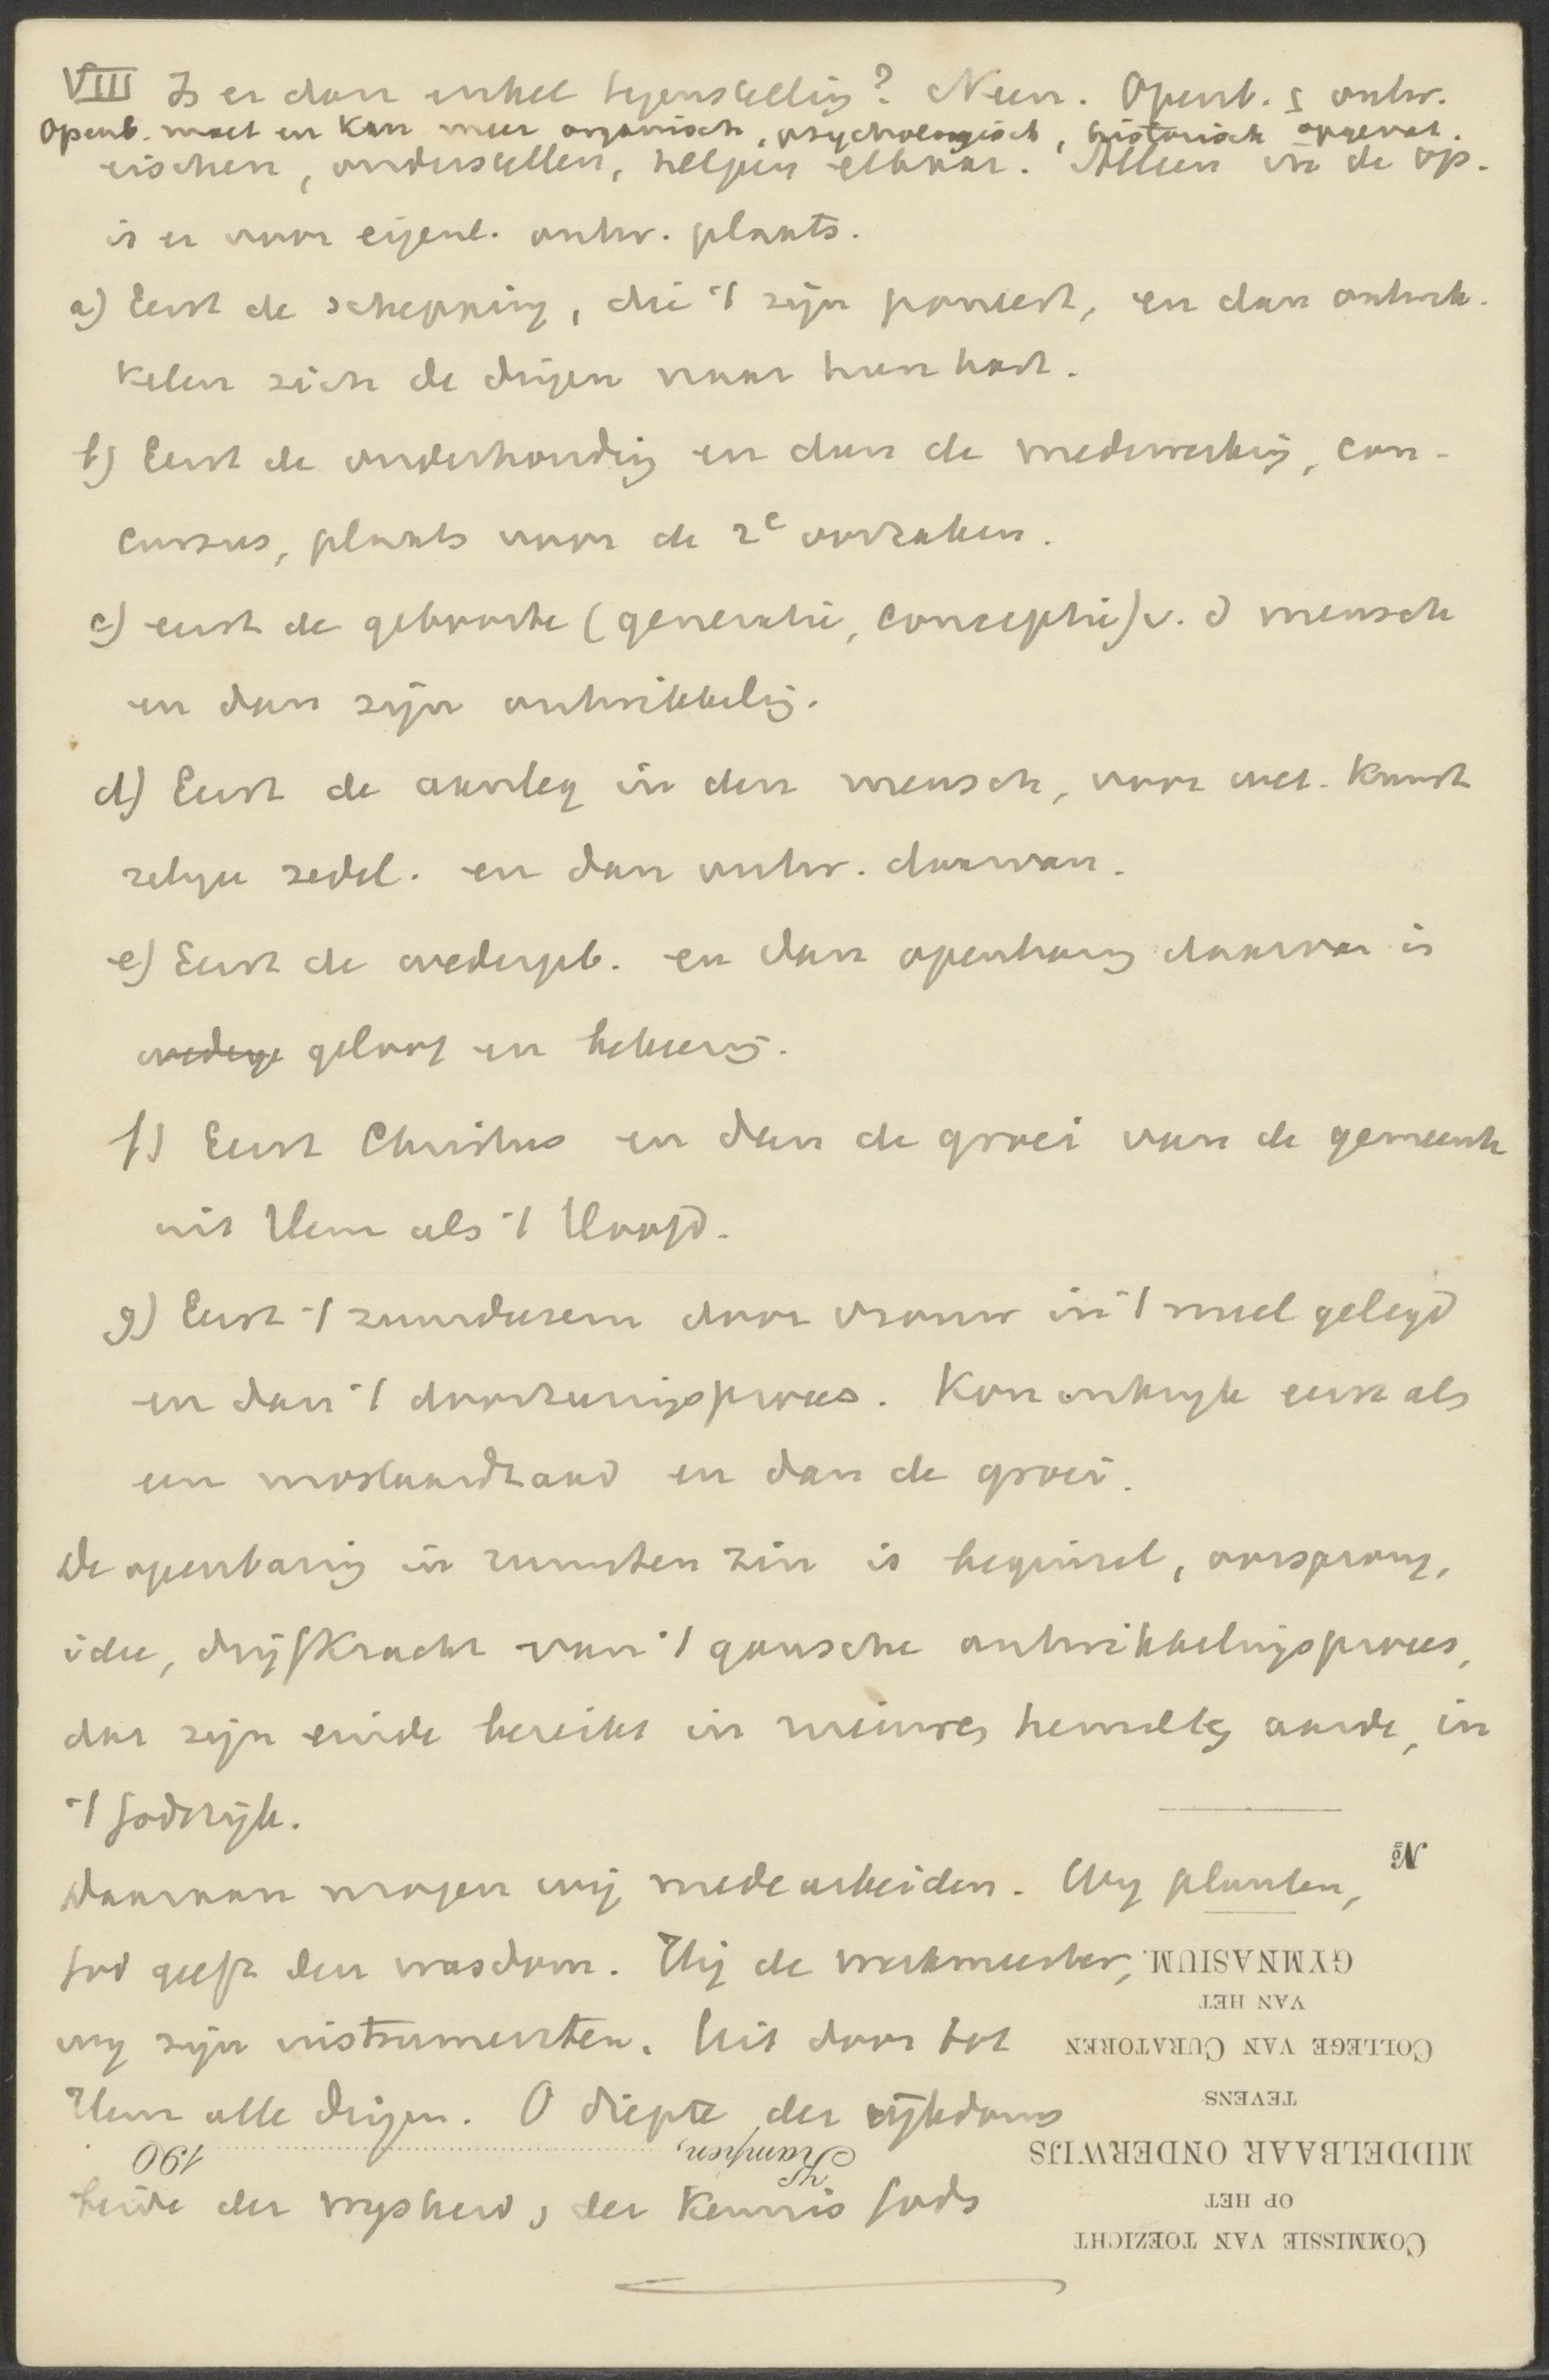 VIII Is er dan enkel tegenstelling? Neen. Openb. & ontw.
Openb. moet en kan meer organisch, psychologisch, historisch opgevat.
eischen, onderstellen, helpen elkaar. Alleen in de op.
is er voor eigenl. ontw. plaats.
a) Eerst de schepping, die 't zijn poneert, en dan ontwik-
kelen zich de dingen naar hun aard.
b) Eerst de onderhouding en dan de medewerking, con-
cursus, plaats voor de 2e oorzaken.
c) eerst de geboorte (generatie, conceptie) v. d mensch
en dan zijn ontwikkeling.
d) Eerst de aanleg in den mensch, voor wet. kunst
religie zedel. en dan ontw. daarvan.
e) Eerst de wedergeb. en dan openbaring daarvan in
wederge geloof en bekeering.
f) Eerst Christus en dan de groei van de gemeente
uit Hem als 't Hoofd.
g) Eerst 't zuurdeesem door vrouw in 't meel gelegd
en dan 't doorzuringsproces. Koninkrijk eerst als
een mostaardzaad en dan de groei.
De openbaring in ruimsten zin is beginsel, oorsprong,
idee, drijfkracht van 't gansche ontwikkelingsproces,
dat zijn einde bereikt in nieuwe hemel & aarde, in
't Godsrijk.
Daaraan mogen wij mede arbeiden. Wij planten,
God geeft den wasdom. Hij de werkmeester,
wij zijn instrumenten. Uit door tot
Hem alle dingen. O diepte der rijkdoms
beide der wijsheid, der kennis Gods
COMMISSIE VAN TOEZICHT
OP HET
MIDDELBAAR ONDERWIJS
TEVENS
COLLEGE VAN CURATOREN
VAN HET
GYMNASIUM.
No
Kampen, 190